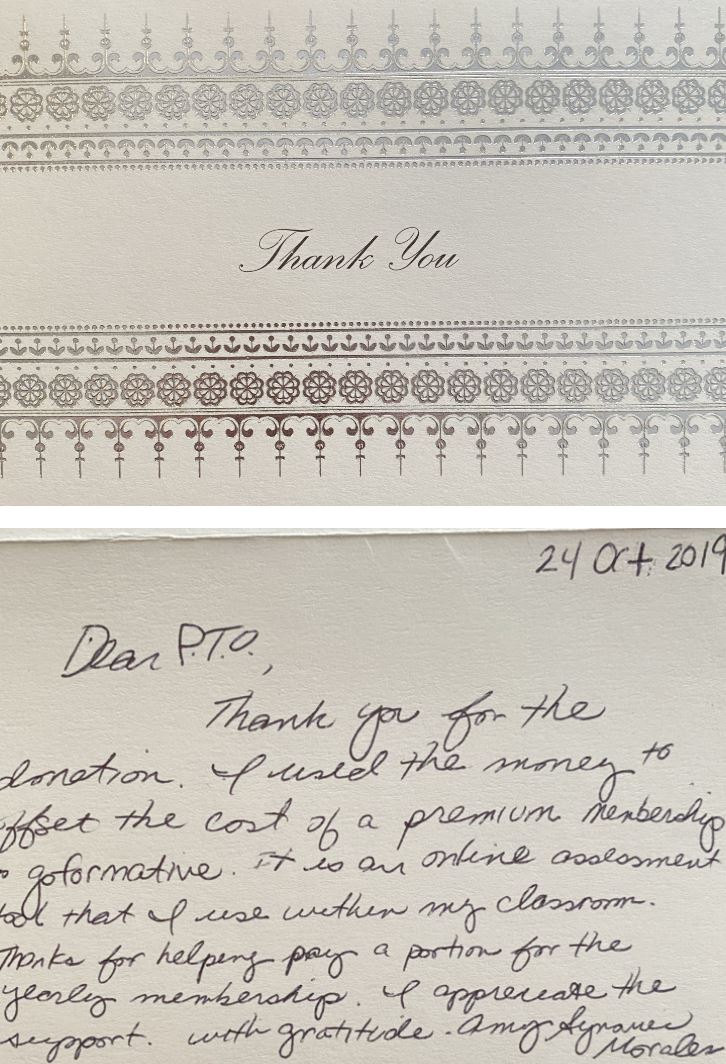 Thank You
24 Oct. 2019
Dear P.T.O.,
Thank you for the
donation. I used the money to
offset the cost of a premium membership
goformative. It is an online assessment
tool that I use within my classroom.
Thanks for helping pay a portion for the
yearly membership. I appreciate the
support. with gratitude. Amy
Morales